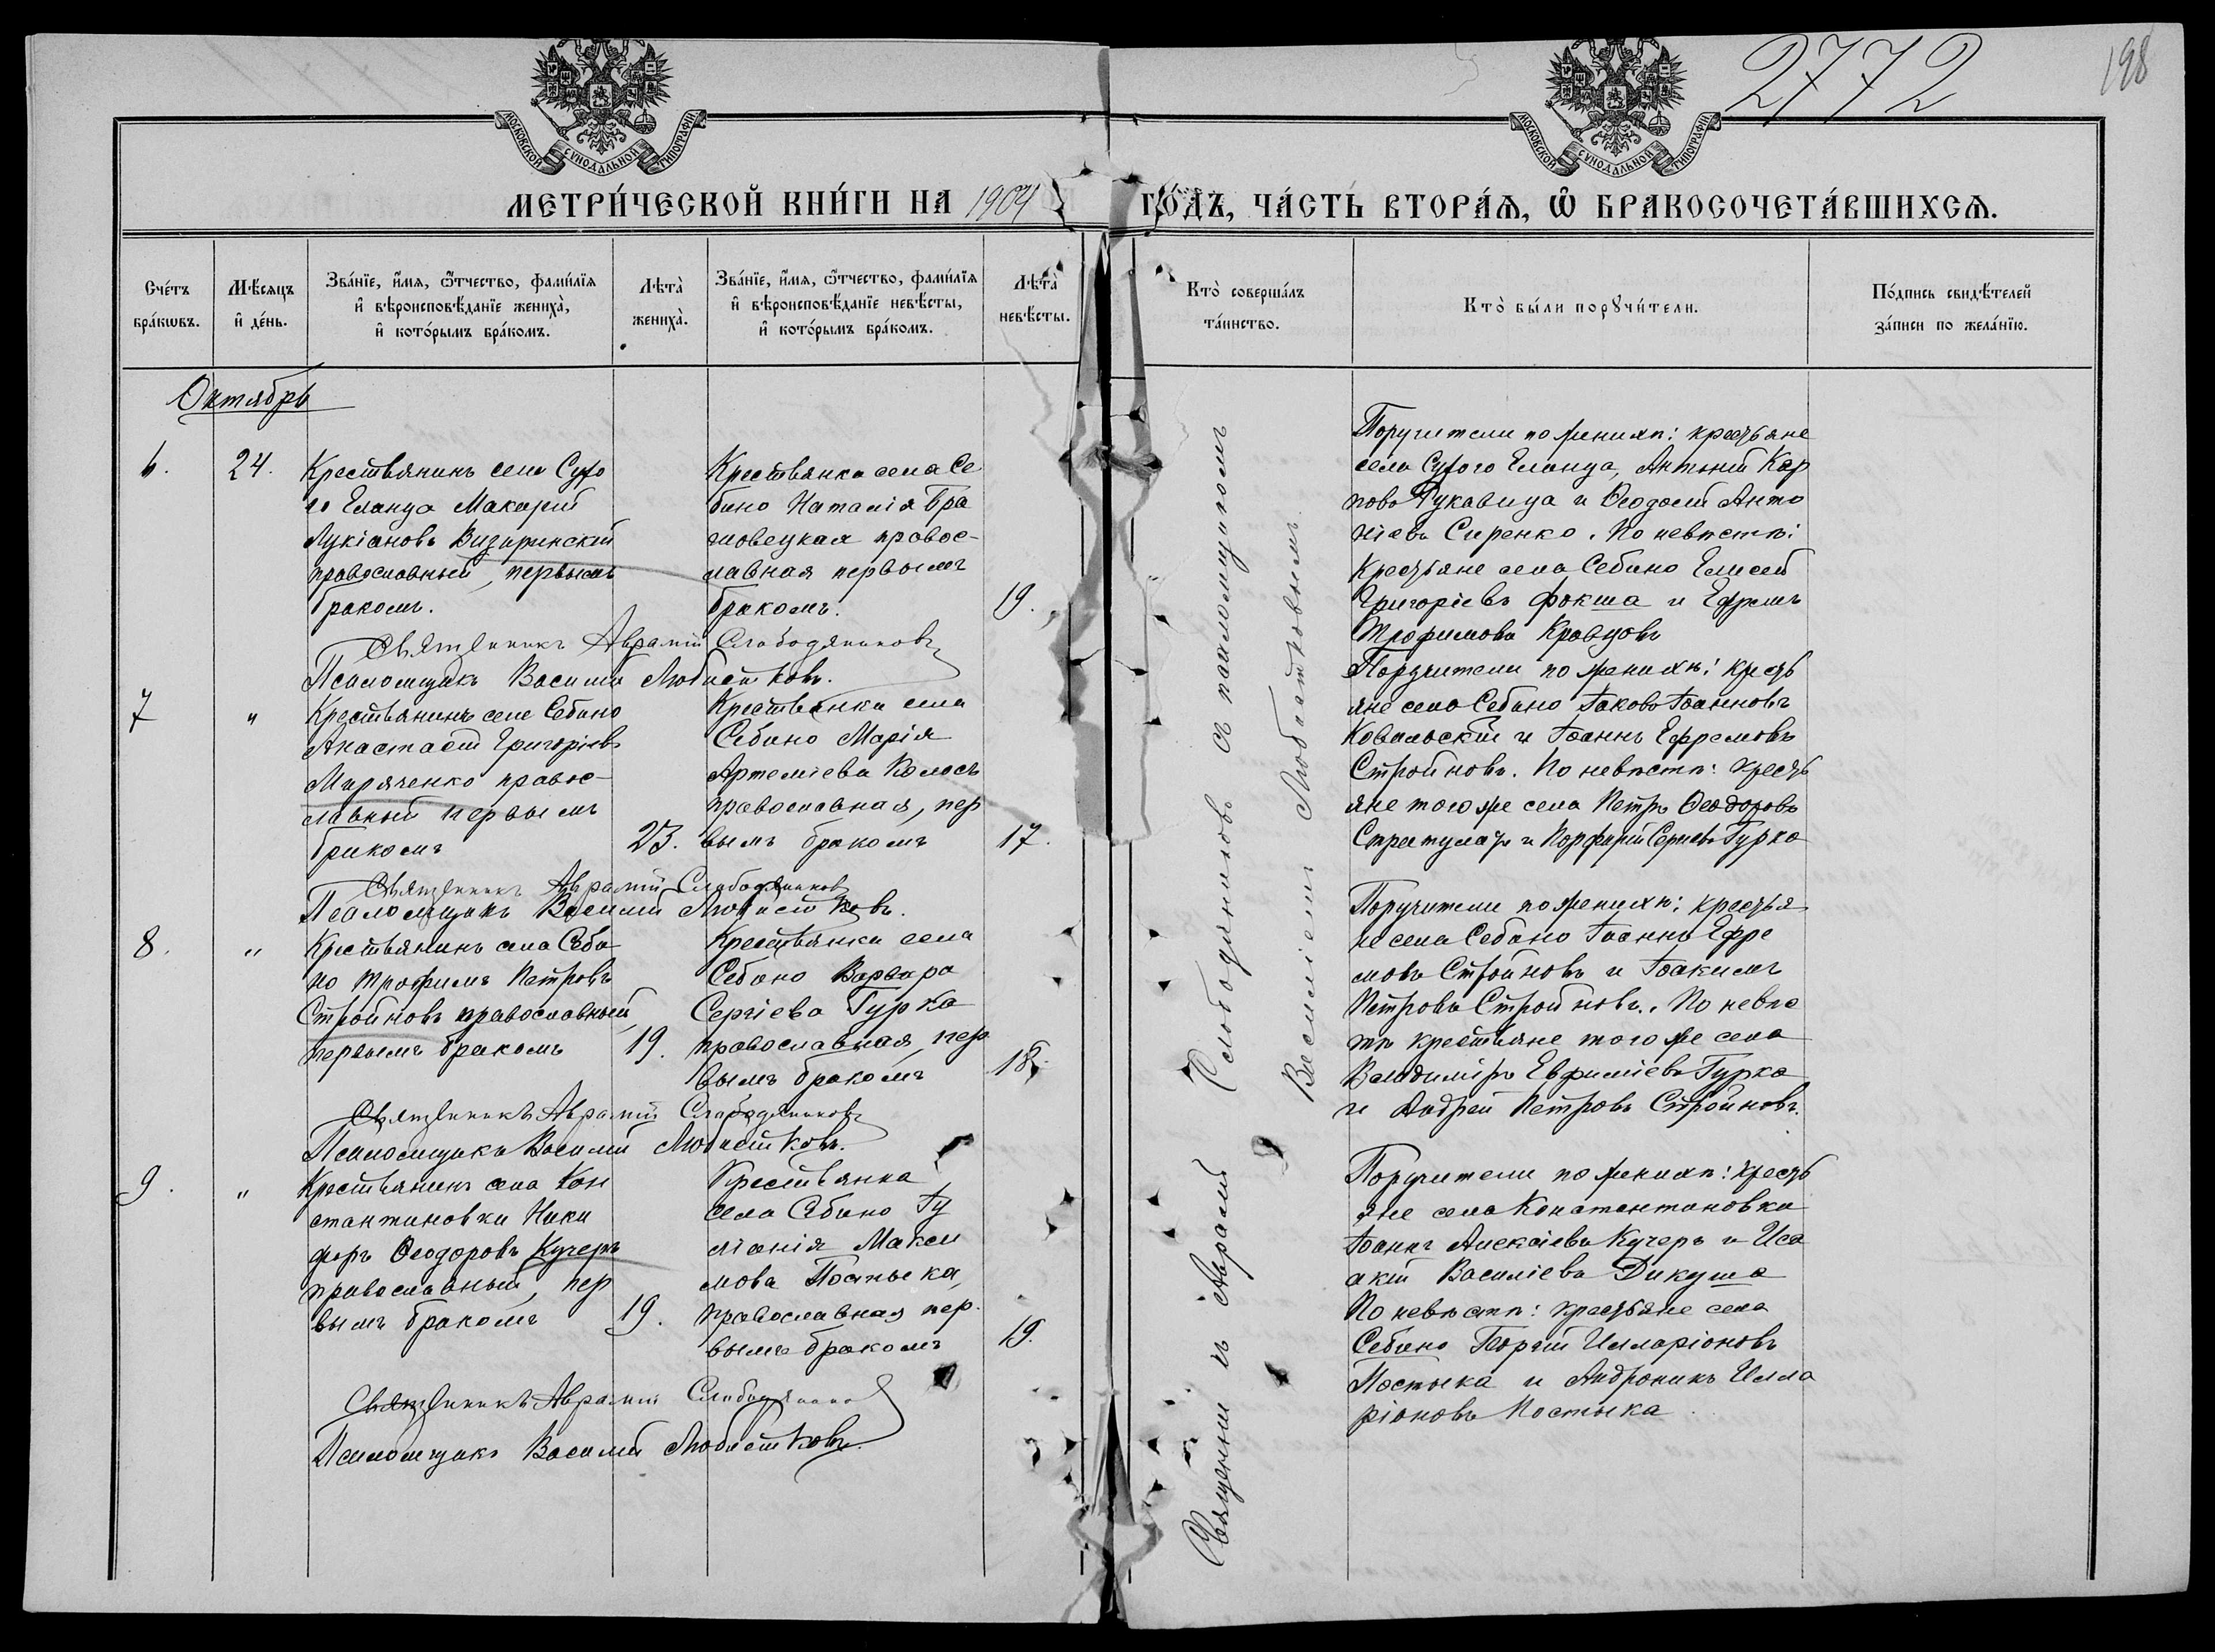 2772
198
МОСКОВСКОЙ СѴНОДАЛЬНОЙ ТИПОГРАФІИ
МОСКОВСКОЙ СѴНОДАЛЬНОЙ ТИПОГРАФІИ
МЕТРИ́ЧЕСКОЙ КНИ́ГИ НА 1904 ГО́ДЪ, ЧА́СТЬ ВТОРА́Я, Ѽ БРАКОСОЧЕТА́ВШИХСЯ.
Сче́тъ бра́кѡвъ.
Мѣ́сяцъ и҆ де́нь.
Зва́нїе, и҆́мя, ѻ҆́тчество, фами́лїя и҆ вѣроисповѣ́данїе жениха̀, и҆ кото́рымъ бра́комъ.
Лѣта̀ жениха̀.
Зва́нїе, и҆́мя, ѻ҆́тчество, фами́лїя и҆ вѣроисповѣ́данїе невѣ́сты, и҆ кото́рымъ бра́комъ.
Лѣта̀ невѣ́сты.
Кто̀ соверша́лъ та́инство.
Кто̀ бы́ли порꙋчи́тели.
По́дпись свидѣ́телей за́писи по жела́нїю.
Октябрь
6.
24.
Крестьянинъ села Сухо
го Еланца Макарій
Лукіановъ Визиринскій
православный, первымъ
бракомъ.
Крестьянка села Се
бино Наталія Бра
православная первымъ
бракомъ.
19.
Поручители по женихѣ: крестьяне
села Сухого Еланца, Антоній Кар
повъ Рукавица и Ѳеодосій Анто
ніевъ Сиренко. По невѣстѣ:
Крестьяне села Себино Елисей
Григоріевъ Фокша и Ефремъ
Трофимовъ Кравцовъ
Священникъ Аврамій Слободяниковъ
Псаломщикъ Василій Любистковъ.
7
"
Крестьянинъ села Себино
Анастасій Григоріевъ
Маряченко правос-
лавный первымъ
бракомъ
23.
Крестьянка села
Себино Марія
Артеміева Колосъ
православная, пер
вымъ бракомъ
17.
Поручители по женихѣ: кресть
яне села Себино Іаковъ Іоанновъ
Ковальскій и Іоаннъ Ефремовъ
Стройновъ. По невѣстѣ: кресть
яне того же села Петръ Ѳеодоровъ
Стратулатъ и Порфирій Сергіевъ Гурка
Священникъ Аврамій Слободяниковъ
Псаломщикъ Василій Любистковъ.
8.
"
Крестьянинъ села Себи
но Трофимъ Петровъ
Стройновъ православный,
первымъ бракомъ
19.
Крестьянка села
Себино Варвара
Сергіева Гурка
православная, пер
вымъ бракомъ
18.
Поручители по женихѣ: крестья
не села Себино Іоаннъ Ефре
мовъ Стройновъ и Іоакимъ
Петровъ Стройновъ. По невѣс
тѣ крестьяне того же села
Владиміръ Евфиміевъ Гурка
и Андрей Петровъ Стройновъ.
Священникъ Аврамій Слободяниковъ
Псаломщикъ Василій Любистковъ.
9.
"
Крестьянинъ села Кон
стантиновки Ники
форъ Ѳеодоровъ Кучеръ
православный, пер
вымъ бракомъ
19.
Крестьянка
села Себино Іу
ліанія Макси
мова Постыка,
православная пер
вымъ бракомъ
19.
Поручители по женихѣ: кресть
яне села Константиновки
Іоаннъ Алексіевъ Кучеръ и Иса
акій Василіевъ Дикуша
По невѣстѣ: крестьяне села
Себино Георгій Илларіоновъ
Постыка и Андроникъ Илла
ріоновъ Постыка
Священникъ Аврамій Слободяниковъ
Псаломщикъ Василій Любистковъ.
Священникъ Аврамій Слободяниковъ съ псаломщикомъ
Василіемъ Любистковымъ.